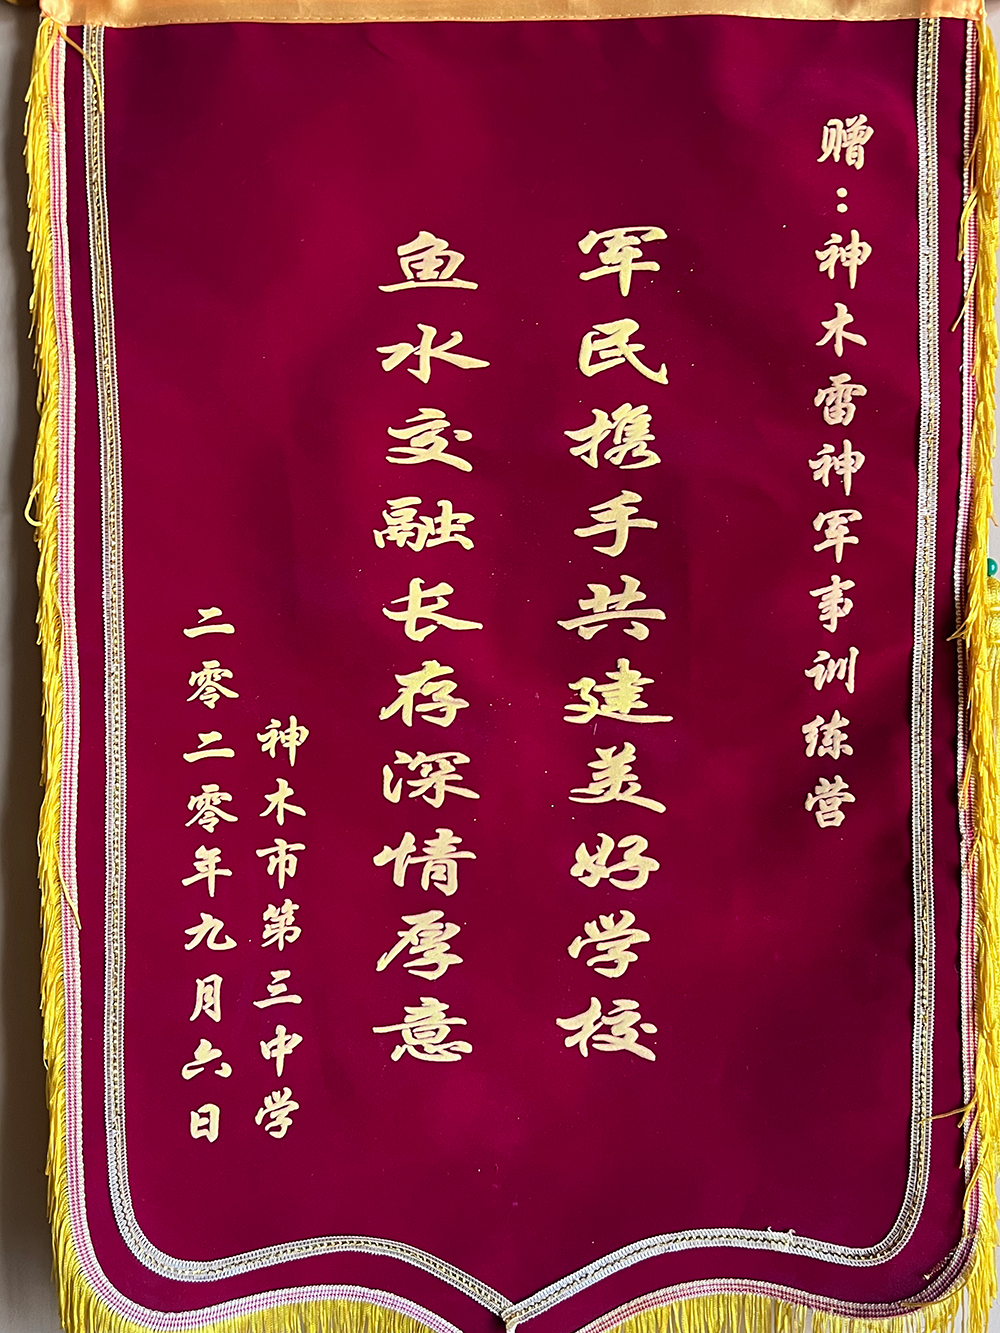 赠：神木雷神军事训练营
军民携手共建美好学校
鱼水交融长存深情厚意
神木市第三中学
二零二零年九月六日